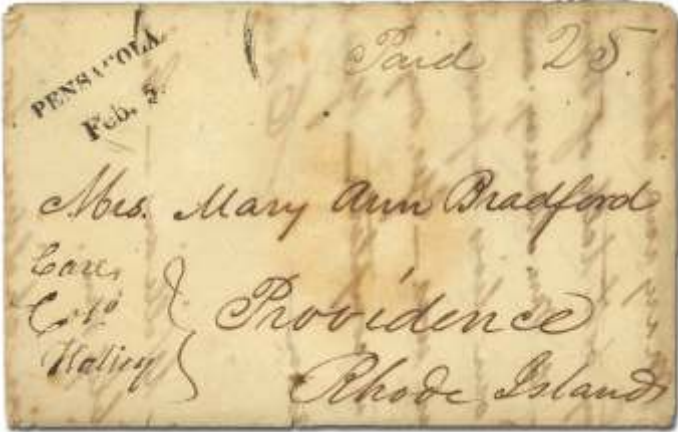 PENSACOLA
Feb. 5.
Paid 25.
Mrs. Mary Ann Bradford
Care
Providence
Rhode Island